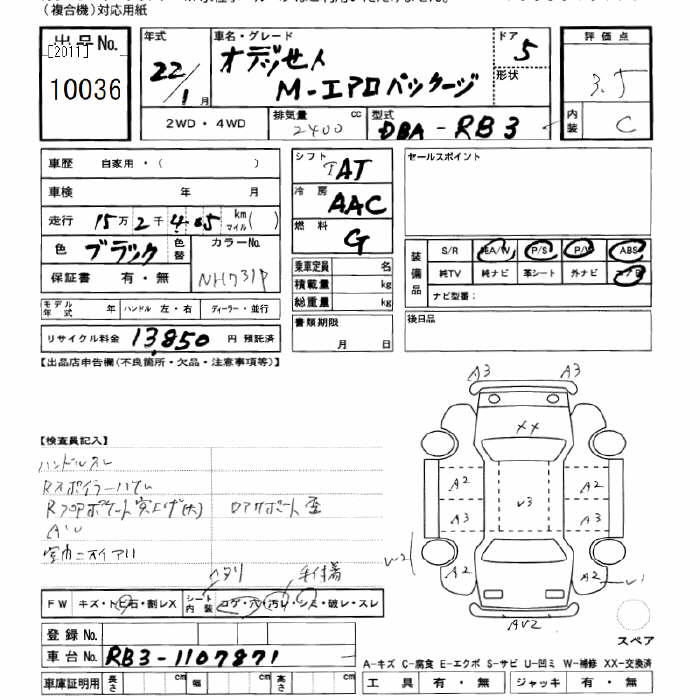 (複合機)対応用紙
出品No.
[2011]
10036
年式
22/1月
車名・グレード
オデッセイ
M-エアロパッケージ
ドア
5
形状
評価点
3.5
内装
C
2WD・4WD
排気量
2400 cc
型式
DBA-RB3
車歴 自家用・( )
車検 年 月
走行 15万2千405 km マイル( )
色 ブラック
色替
カラーNo.
NH731P
保証書 有・無
モデル年式 年
ハンドル 左・右
ディーラー・並行
リサイクル料金 13,850 円 預託済
シフト
AT
冷房
AAC
燃料
G
乗車定員 名
積載量 kg
総重量 kg
書類期限
月 日
セールスポイント
装備品
S/R 純A/W P/S P/W ABS
純TV 純ナビ 革シート 外ナビ エアB
ナビ型番:
後日品
【出品店申告欄(不良箇所・欠品・注意事項等)】
【検査員記入】
ハンドルスレ
室内ニオイアリ
ヘタリ
FW キズ・トビ石・割レX
シート内装
コゲ・穴・汚レ・シミ・破レ・スレ
登録No.
車台No. RB3-1107871
車庫証明用 長さ cm 幅 cm 高さ cm
A3 A3
XX
A2 A2
V3
A3 A3
V2
A2 A2 V1
AV2
スペア
A-キズ C-腐食 E-エクボ S-サビ U-凹ミ W-補修 XX-交換済
工具 有・無 ジャッキ 有・無